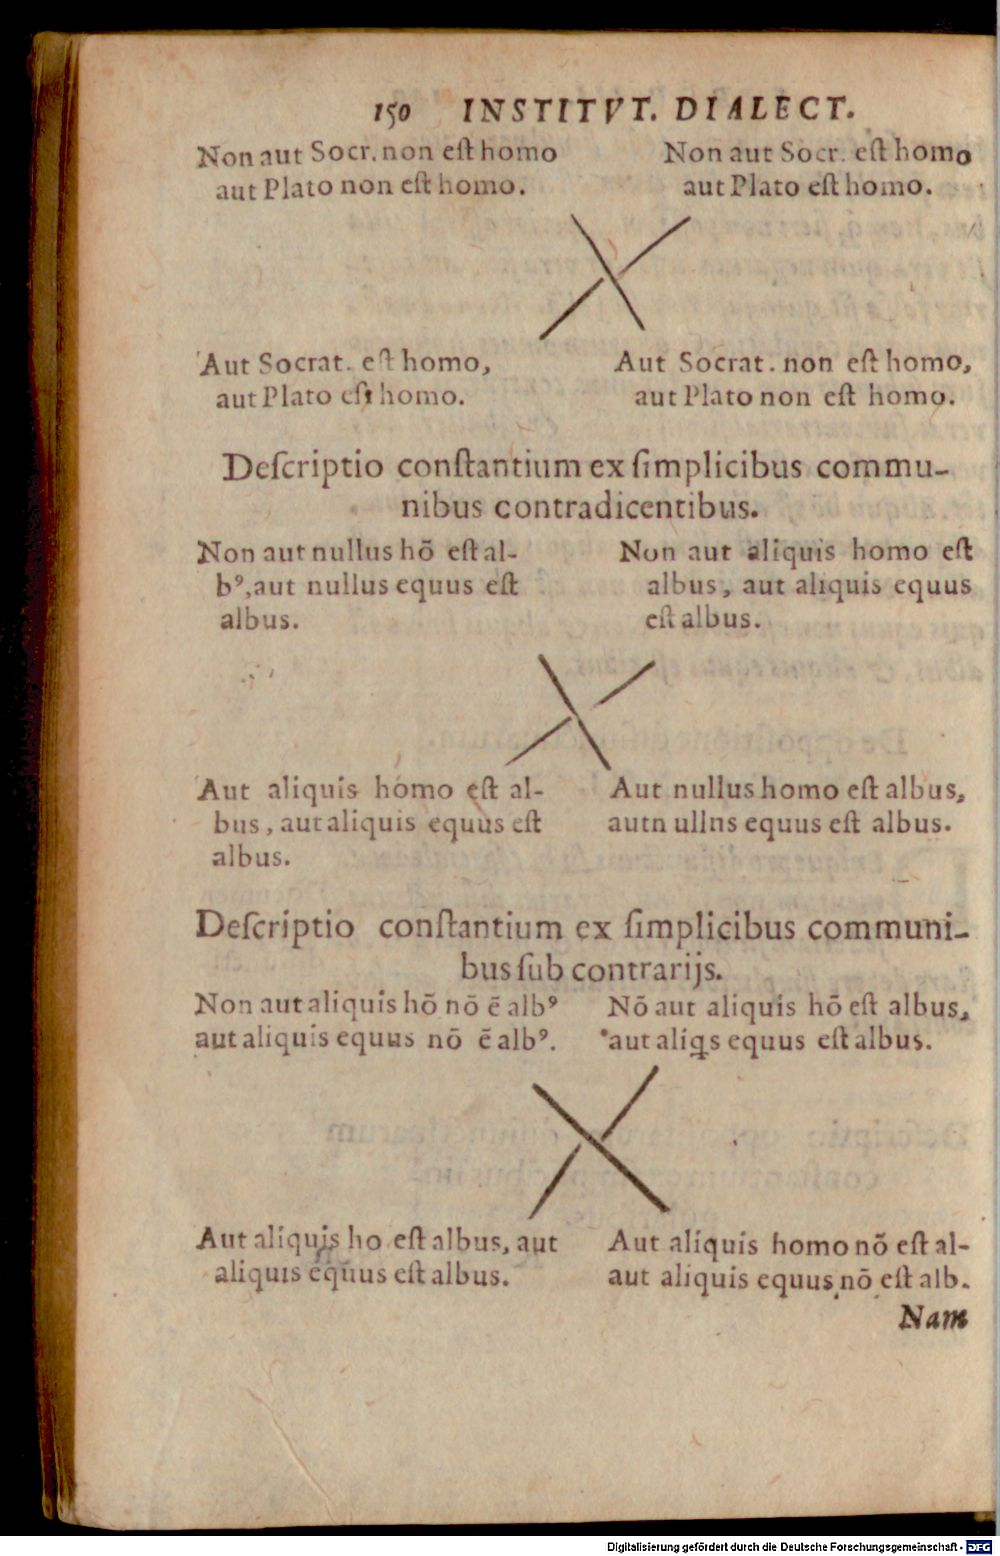 150 INSTITVT. DIALECT.
Non aut Socr. non eſt homo
aut Plato non eſt homo.
Non aut Socr. eſt homo
aut Plato eſt homo.
Aut Socrat. eſt homo,
aut Plato eſt homo.
Aut Socrat. non eſt homo,
aut Plato non eſt homo.
Deſcriptio conſtantium ex ſimplicibus commu-
nibus contradicentibus.
Non aut nullus hō eſt al-
bꝰ, aut nullus equus eſt
albus.
Non aut aliquis homo eſt
albus, aut aliquis equus
eſt albus.
Aut aliquis homo eſt al-
bus, aut aliquis equus eſt
albus.
Aut nullus homo eſt albus,
autn ullns equus eſt albus.
Deſcriptio conſtantium ex ſimplicibus communi-
bus ſub contrarijs.
Non aut aliquis hō nō ē albꝰ
aut aliquis equus nō ē albꝰ.
Nō aut aliquis hō eſt albus,
aut aliꝗs equus eſt albus.
Aut aliquis ho eſt albus, aut
aliquis equus eſt albus.
Aut aliquis homo nō eſt al-
aut aliquis equus nō eſt alb.
Nam
Digitalisierung gefördert durch die Deutsche Forschungsgemeinschaft - DFG